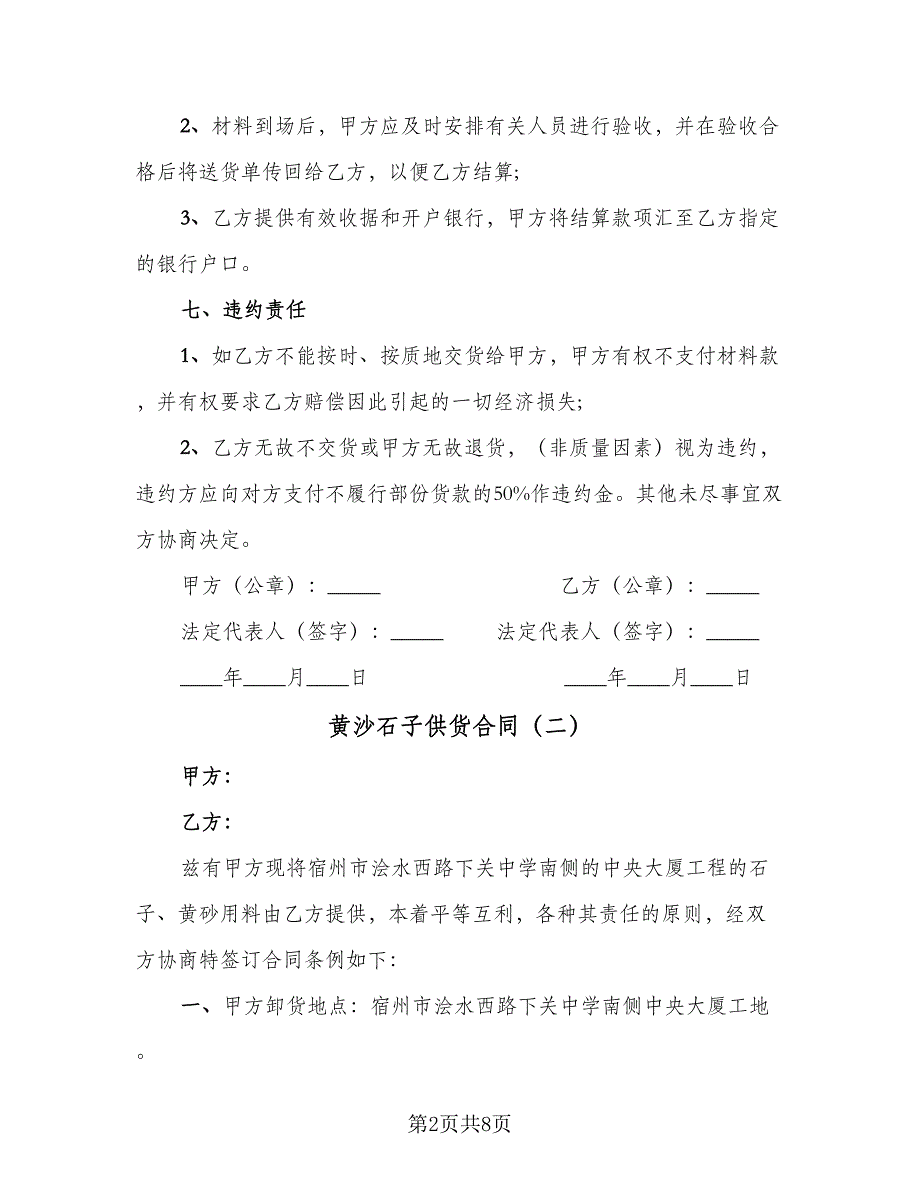 2、材料到场后，甲方应及时安排有关人员进行验收，并在验收合
格后将送货单传回给乙方，以便乙方结算;
3、乙方提供有效收据和开户银行，甲方将结算款项汇至乙方指定
的银行户口。
七、违约责任
1、如乙方不能按时、按质地交货给甲方，甲方有权不支付材料款
，并有权要求乙方赔偿因此引起的一切经济损失;
2、乙方无故不交货或甲方无故退货，（非质量因素）视为违约，
违约方应向对方支付不履行部份货款的50%作违约金。其他未尽事宜双
方协商决定。
甲方（公章）：_____ 乙方（公章）：_____
法定代表人（签字）：_____ 法定代表人（签字）：_____
____年____月____日 ____年____月____日
黄沙石子供货合同（二）
甲方：
乙方：
兹有甲方现将宿州市浍水西路下关中学南侧的中央大厦工程的石
子、黄砂用料由乙方提供，本着平等互利，各种其责任的原则，经双
方协商特签订合同条例如下：
一、甲方卸货地点：宿州市浍水西路下关中学南侧中央大厦工地
。
第2页共8页